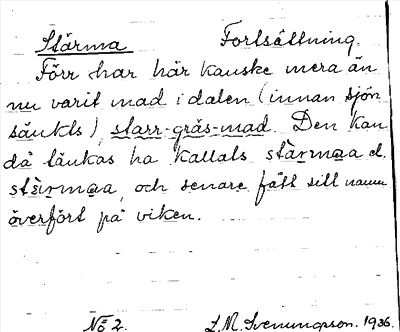 Stärma Fortsättning.
Förr har här kanske mera än
nu varit mad i dalen (innan sjön
sänkts), starr-gräs-mad. Den kan
då tänkas ha kallats stàrmaa el.
stärmaa, och senare fått sitt namn
överfört på viken.
No 2. L. M. Svenungsson. 1936.